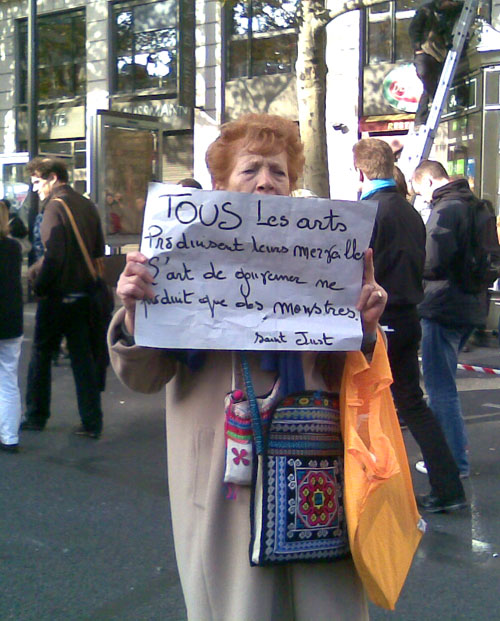 TOUS Les arts
Produisent leurs merveilles
L'art de gouverner ne
produit que des monstres.
Saint Just